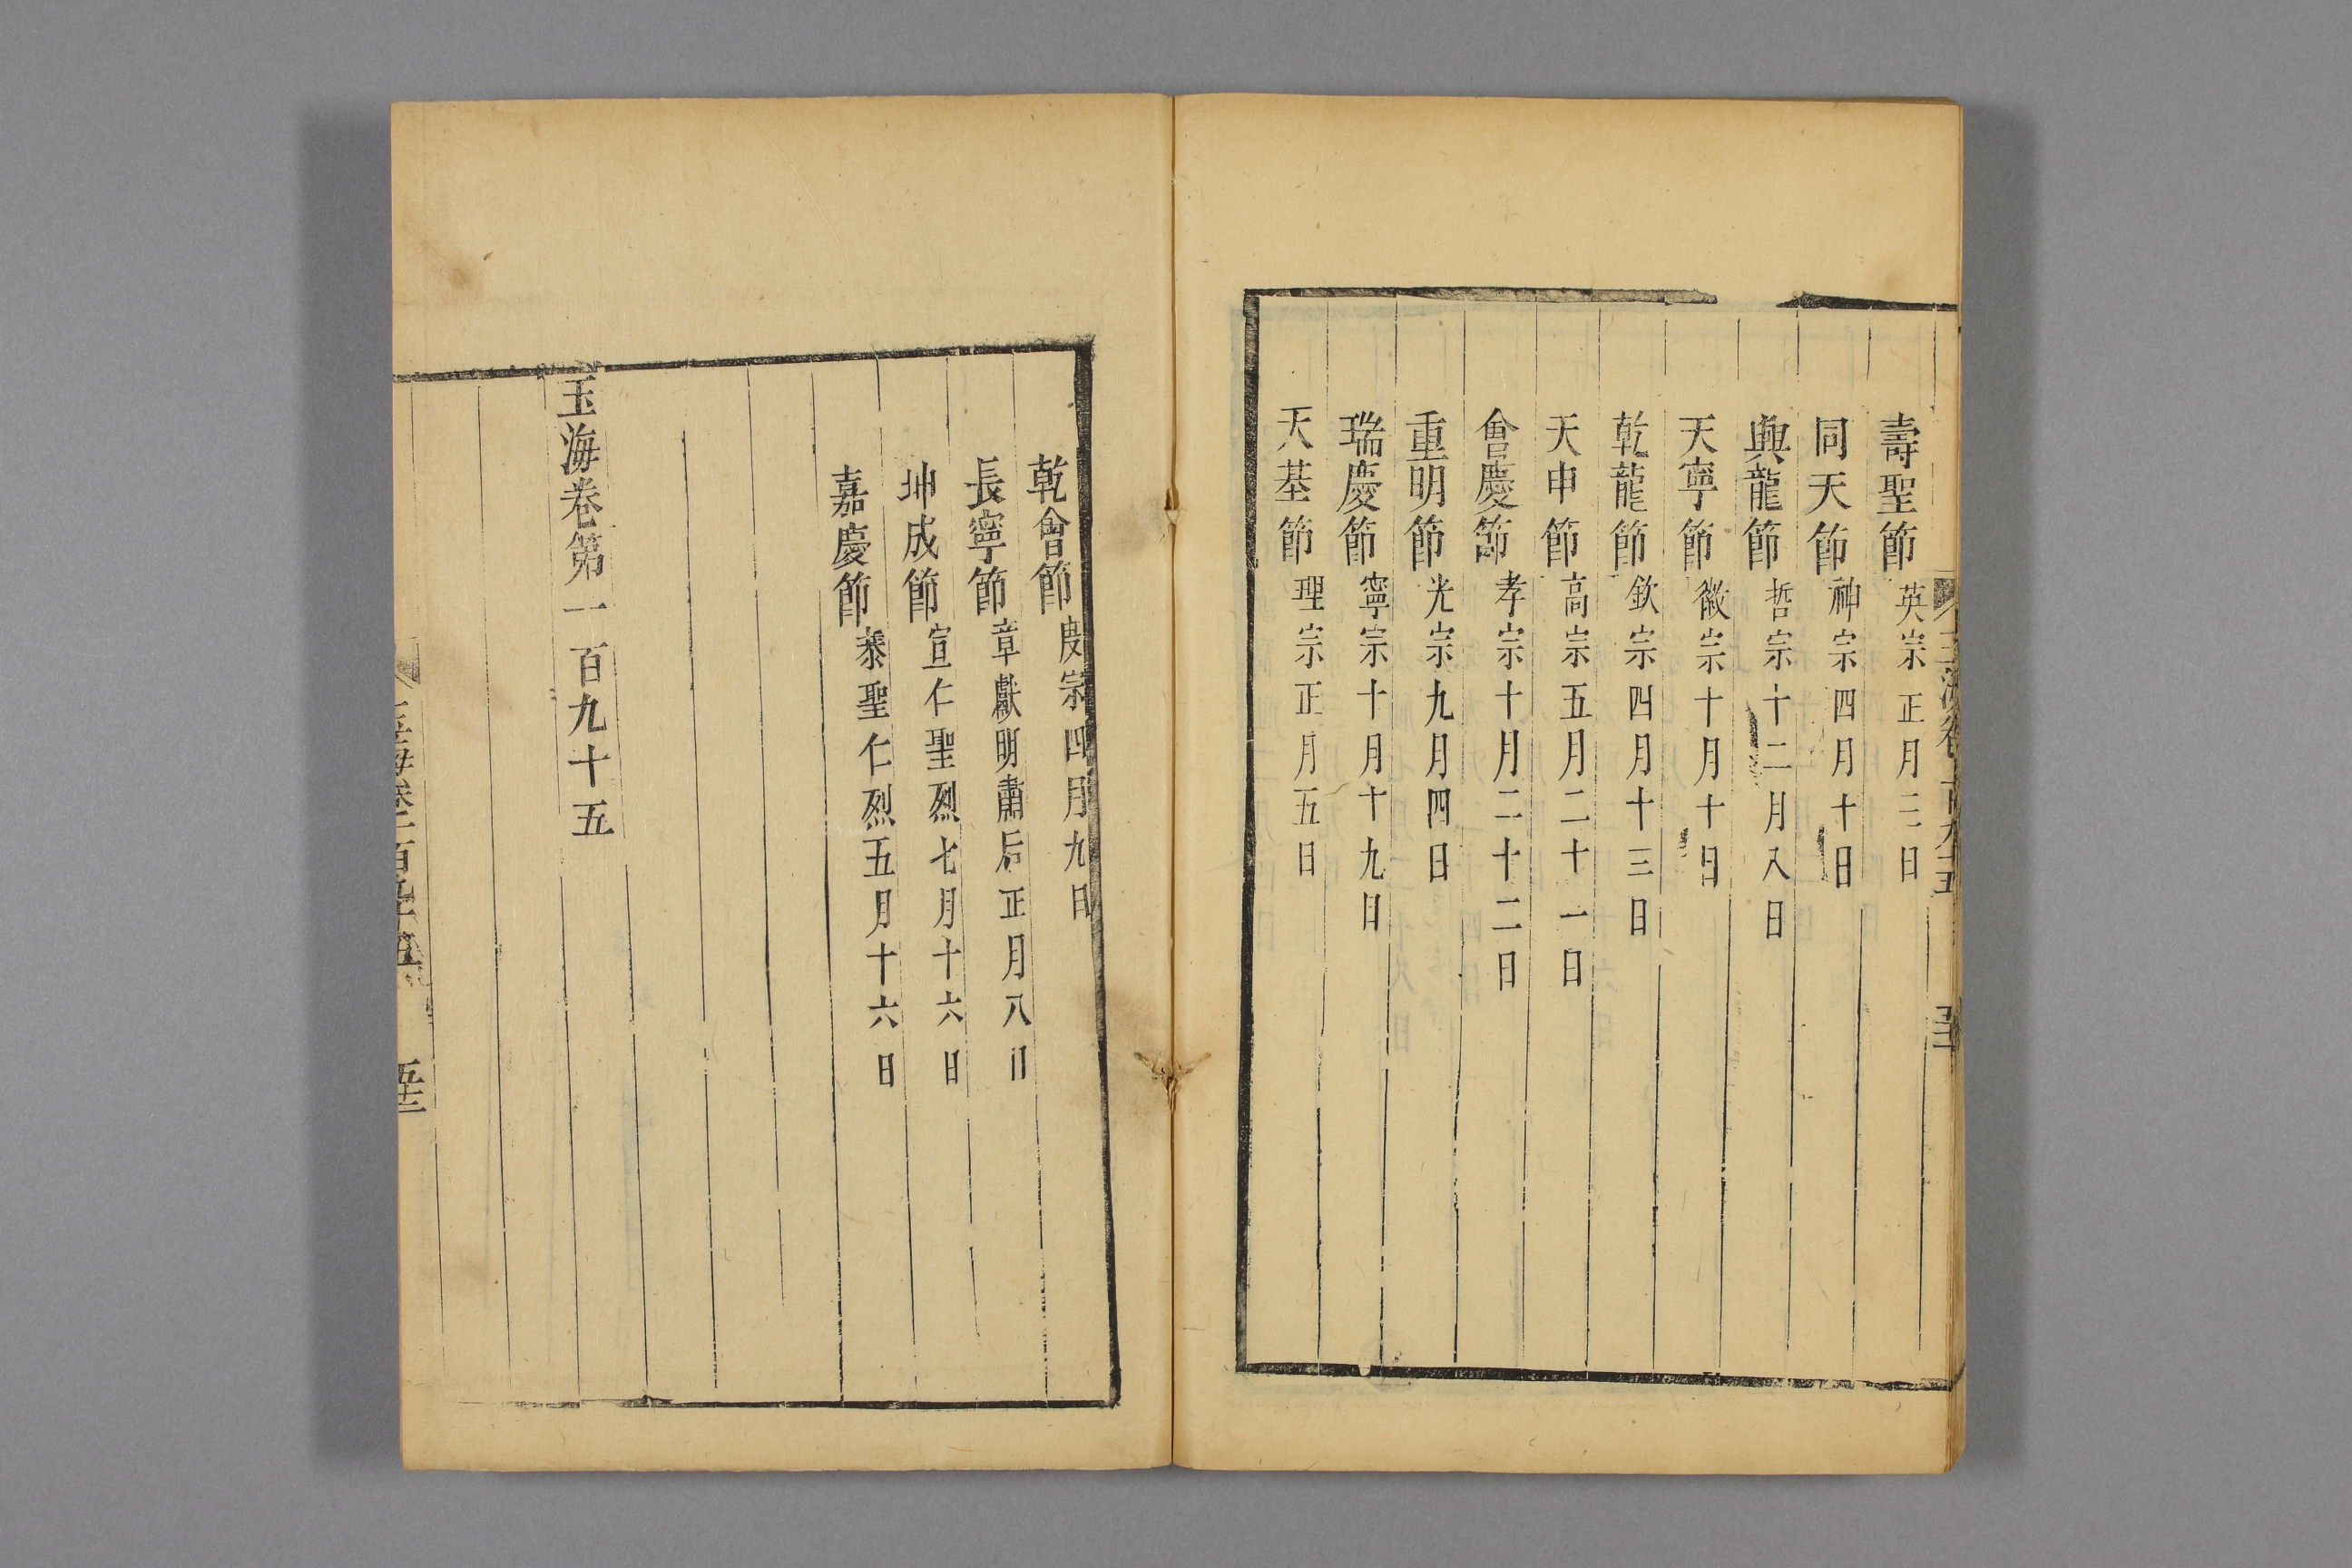 壽聖節英宗正月三日
同天節神宗四月十日
興龍節哲宗十二月八日
天寧節徽宗十月十日
乾龍節欽宗四月十三日
天申節高宗五月二十一日
會慶節孝宗十月二十二日
重明節光宗九月四日
瑞慶節寧宗十月十九日
天基節理宗正月五日
乾會節度宗四月九日
長寧節章獻明肅后正月八日
坤成節宣仁聖烈七月十六日
嘉慶節恭聖仁烈五月十六日
玉海卷第一百九十五